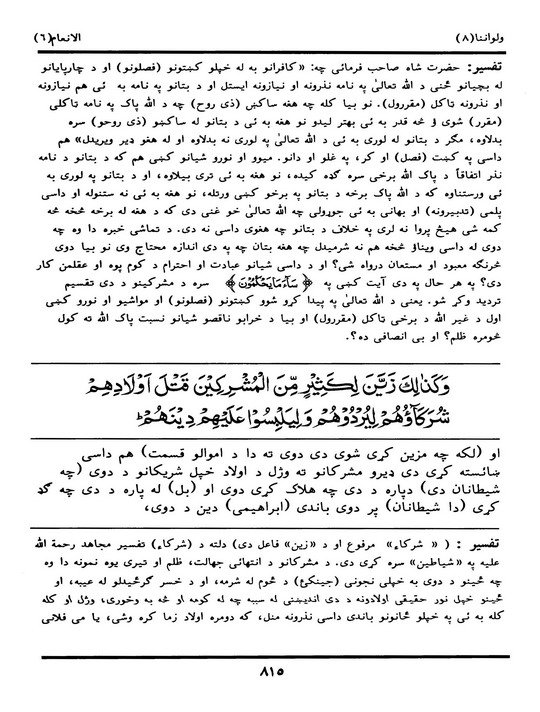 ولواننا(٨)
الانعام(٦)
تفسير: حضرت شاه صاحب فرمائي چه: «کافرانو به له خپلو کښتونو (فصلونو) او د چارپایانو
له بچیانو څخه د الله تعالیٰ په نامه نذرونه او نیازونه ایستل او د بتانو په نامه به ئی هم نیازونه
او نذرونه تاکل (مقررول). نو بیا کله چه هغه ساکښ (ذی روح) چه د الله پاک په نامه تاکلی
(مقرر) شوی ؤ څه قدر به ئی بهتر لیدو نو هغه به ئی د بتانو له ساکښو (ذی روحو) سره
بدلاوه، مگر د بتانو له لوری به ئی د الله تعالیٰ په لوری نه بدلاوه او له هغو ډیر ویریدل» هم
داسی په کښت (فصل) او کر، په غلو او دانو. میوو او نورو شیانو کښی هم که د بتانو د نامه
نذر اتفاقاً د پاک الله برخی سره ګډ کیده، نو هغه به ئی تری بیلاوه، او د بتانو په لوری به
ئی ورستناوه که د الله پاک برخه د بتانو په برخو کښی ورتله، نو هغه به ئی نه ستنوله او داسی
پلمی (تدبیرونه) او بهانی به ئی جوړولی چه الله تعالیٰ خو غنی دی که د هغه له برخه څخه څه
کمه شی هیڅ پروا نه لری په خلاف د بتانو چه هغوی داسی نه دی. د تماشی خبره دا وه چه
دوی له داسی ویناؤ څخه هم نه شرمیدل چه هغه بتان چه په دی اندازه محتاج وی نو بیا دوی
څرنګه معبود او مستعان درواه شی؟ او د داسی شیانو عبادت او احترام د کوم پوه او عقلمن کار
دی؟ په هر حال په دی آیت کښی په ﴿ سَآءَ مَا يَحْكُمُوْنَ ﴾ سره د مشرکینو د دی تقسیم
تردید وکړ شو. یعنی د الله تعالیٰ په پیدا کړو شوو کښتونو (فصلونو) او مواشیو او نورو کښی
اول د غیر الله د برخی تاکل (مقررول) او بیا د خرابو ناقصو شیانو نسبت پاک الله ته کول
څومره ظلم؟ او بی انصافی ده؟.
وَكَذٰلِكَ زَيَّنَ لِكَثِيْرٍ مِّنَ الْمُشْرِكِيْنَ قَتْلَ اَوْلَادِهِمْ
شُرَكَآؤُهُمْ لِيُرْدُوْهُمْ وَلِيَلْبِسُوْا عَلَيْهِمْ دِيْنَهُمْ ؕ
او (لکه چه مزین کړی شوی دی دوی ته دا د اموالو قسمت) هم داسی
ښائسته کړی دی ډیرو مشرکانو ته وژل د اولاد خپل شریکانو د دوی (چه
شیطانان دی) دپاره د دی چه هلاک کړی دوی او (بل) له پاره د دی چه ګډ
کړی (دا شیطانان) پر دوی باندی (ابراهیمی) دین د دوی،
تفسیر : ( « شرکاء» مرفوع او د «زین» فاعل دی) دلته د (شرکاء) تفسیر مجاهد رحمة الله
علیه په «شیاطین» سره کړی دی. د مشرکانو د انتهائی جهالت، ظلم او تیری یوه نمونه دا وه
چه ځینو د دوی به خپلی نجونی (جینکئ) د ځوم له شرمه، او د خسر ګرځیدلو له عیبه، او
ځینو خپل نور حقیقی اولادونه د دی اندیښنی له سببه چه له کومه او څه به وخوری، وژل او کله
کله به ئی په خپلو ځانونو باندی داسی نذرونه منل، که دومره اولاد زما کره وشی، یا می فلانی
٨١٥